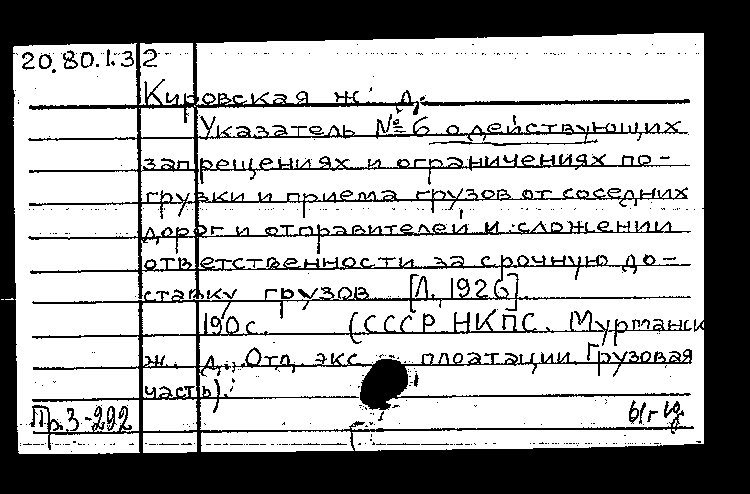 20.80.1.3 2
Кировская ж. д.
Указатель № 6 о действующих
запрещениях и ограничениях по-
грузки и приема грузов от соседних
дорог и отправителей и сложении
ответственности за срочную до-
ставку грузов [Л., 1926].
190 с. (СССР НКПС. Мурманск
ж. д., Отд экс плоатации. Грузовая
часть).
Пр.3-292